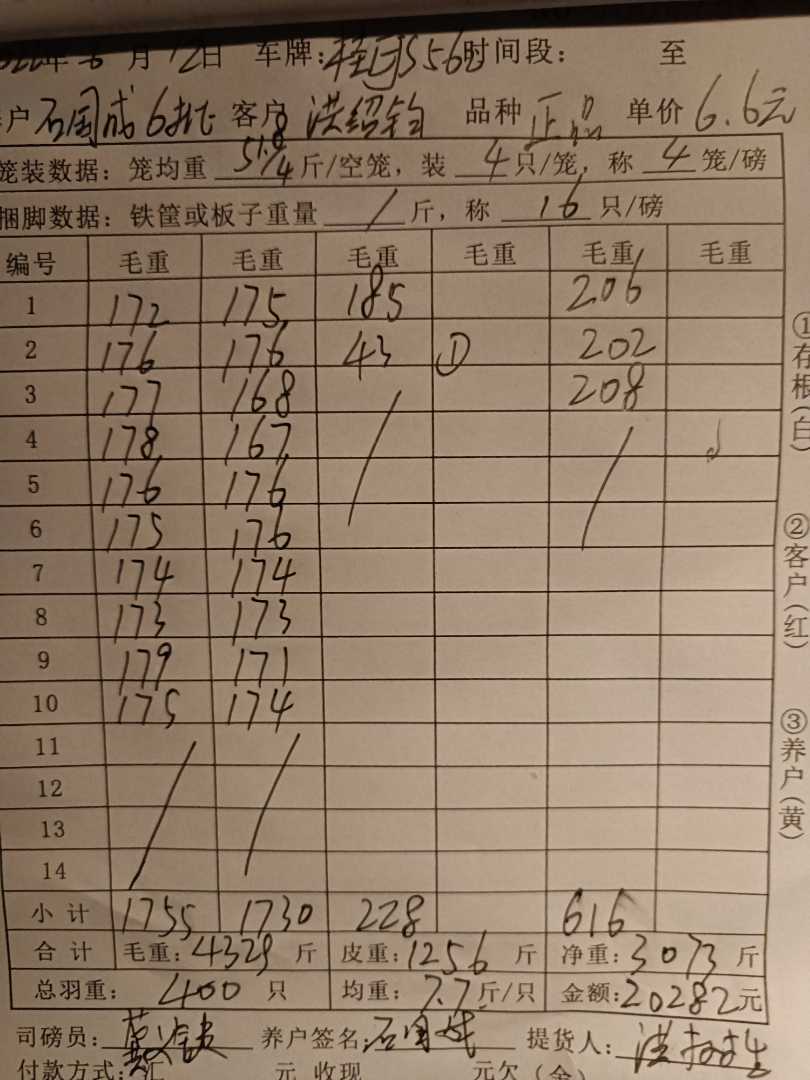 年6月12日 车牌: 556 时间段: 至
户 石国成 6批 客户 洪绍钧 品种 正品 单价 6.6元
笼装数据: 笼均重 斤/空笼, 装 4 只/笼, 称 4 笼/磅
捆脚数据: 铁筐或板子重量 / 斤, 称 16 只/磅
编号 毛重 毛重 毛重 毛重 毛重 毛重
1 172 175 185 206
2 176 176 43 ① 202
3 177 168 / 208
4 178 167 /
5 176 176
6 175 176
7 174 174
8 173 173
9 179 171
10 175 174
11 / /
12
13
14
小计 1755 1730 228 616
合计 毛重: 4329 斤 皮重: 1256 斤 净重: 3073 斤
总羽重: 400 只 均重: 7.7 斤/只 金额: 20282 元
司磅员: 养户签名: 石国成 提货人: 洪
付款方式: 汇 元 收现 元欠(金)
①存根(白)
②客户(红)
③养户(黄)